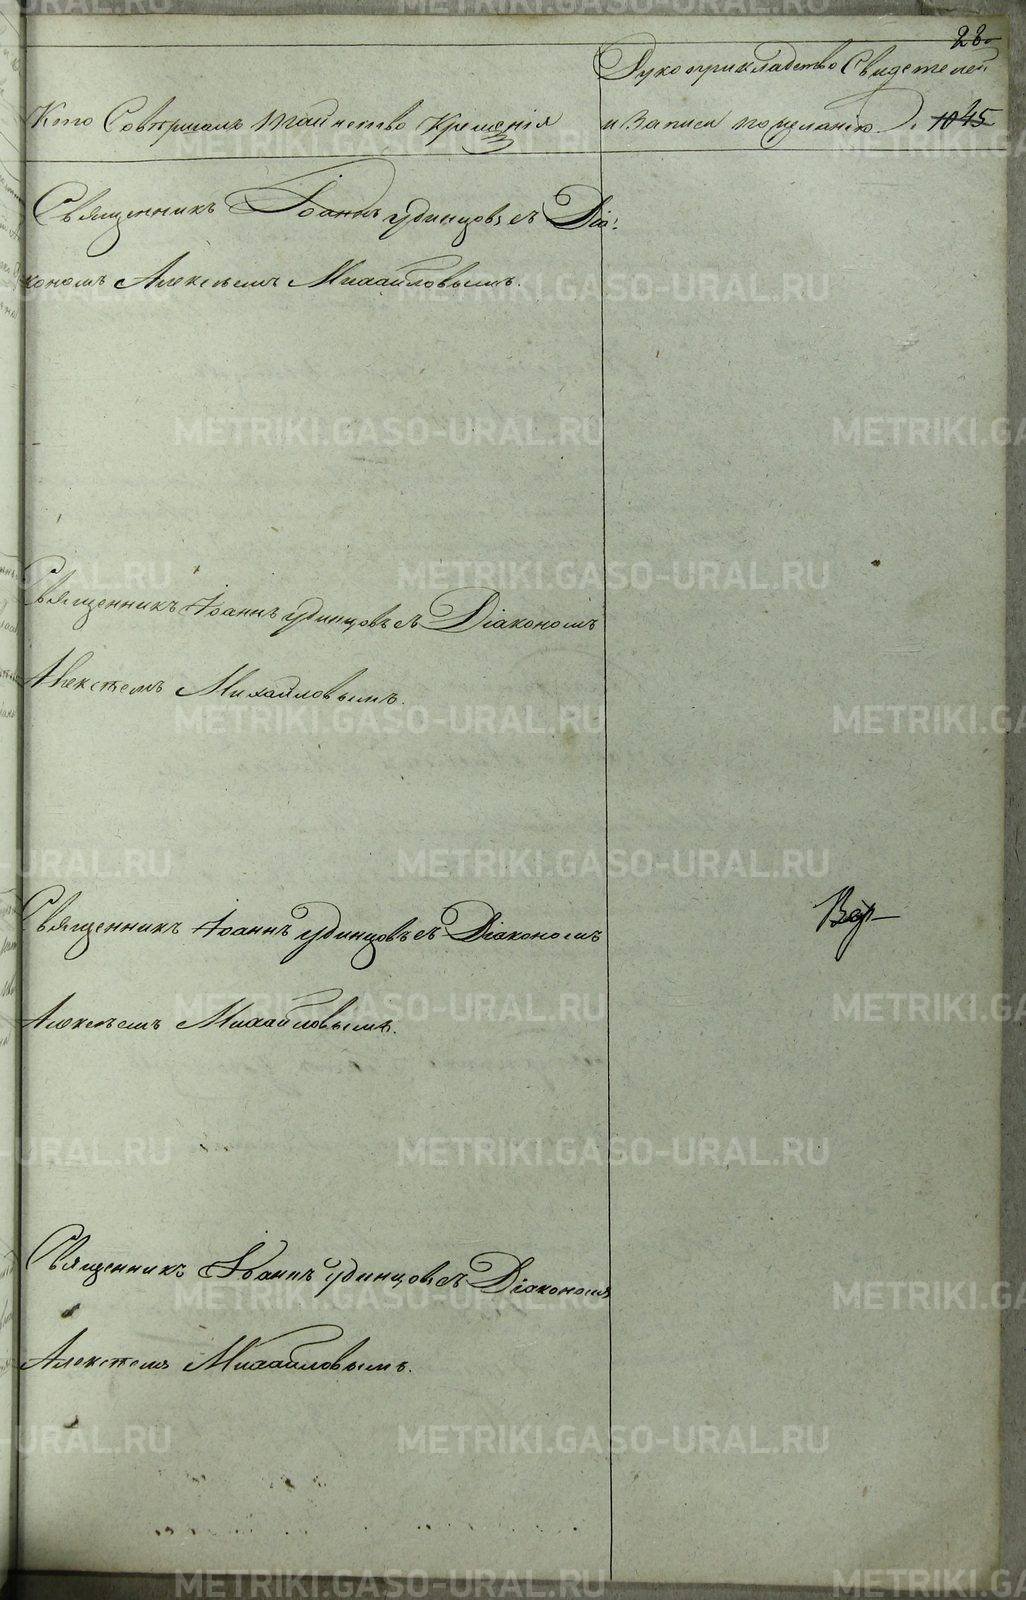 23
Рукоприкладство Свидетелей
Кто Совершалъ таинство Крещенія
и Записи по желанію. 1045
Священникъ Іоаннъ Удинцовъ съ Діа:
кономъ Алексѣемъ Михайловымъ.
Священникъ Іоаннъ Удинцовъ съ Діакономъ
Алексѣемъ Михайловымъ.
Священникъ Іоаннъ Удинцовъ съ Діакономъ
Алексѣемъ Михайловымъ.
Священникъ Іоаннъ Удинцовъ съ Діакономъ
Алексѣемъ Михайловымъ.
METRIKI.GASO-URAL.RU